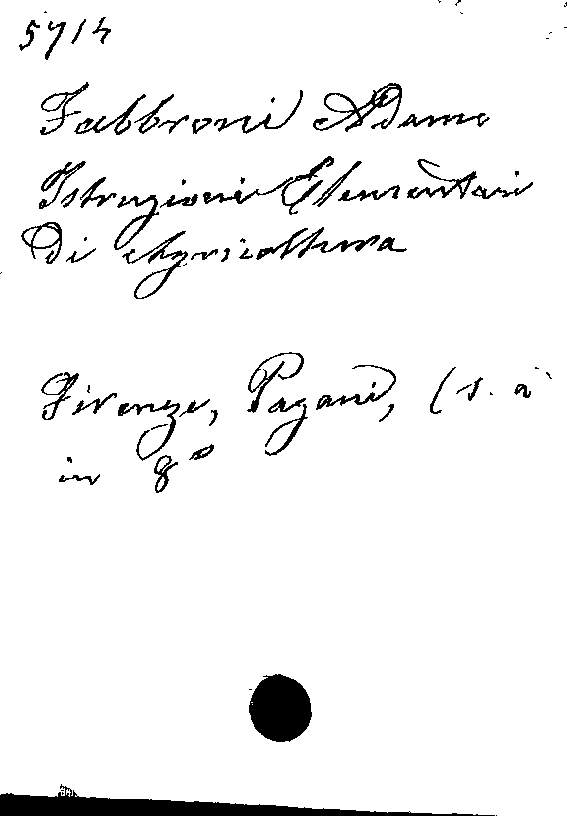 5714
Fabbroni Adamo
Istruzioni Elementari
Di Agricoltura
Firenze, Pagani, (s. a
in 8º